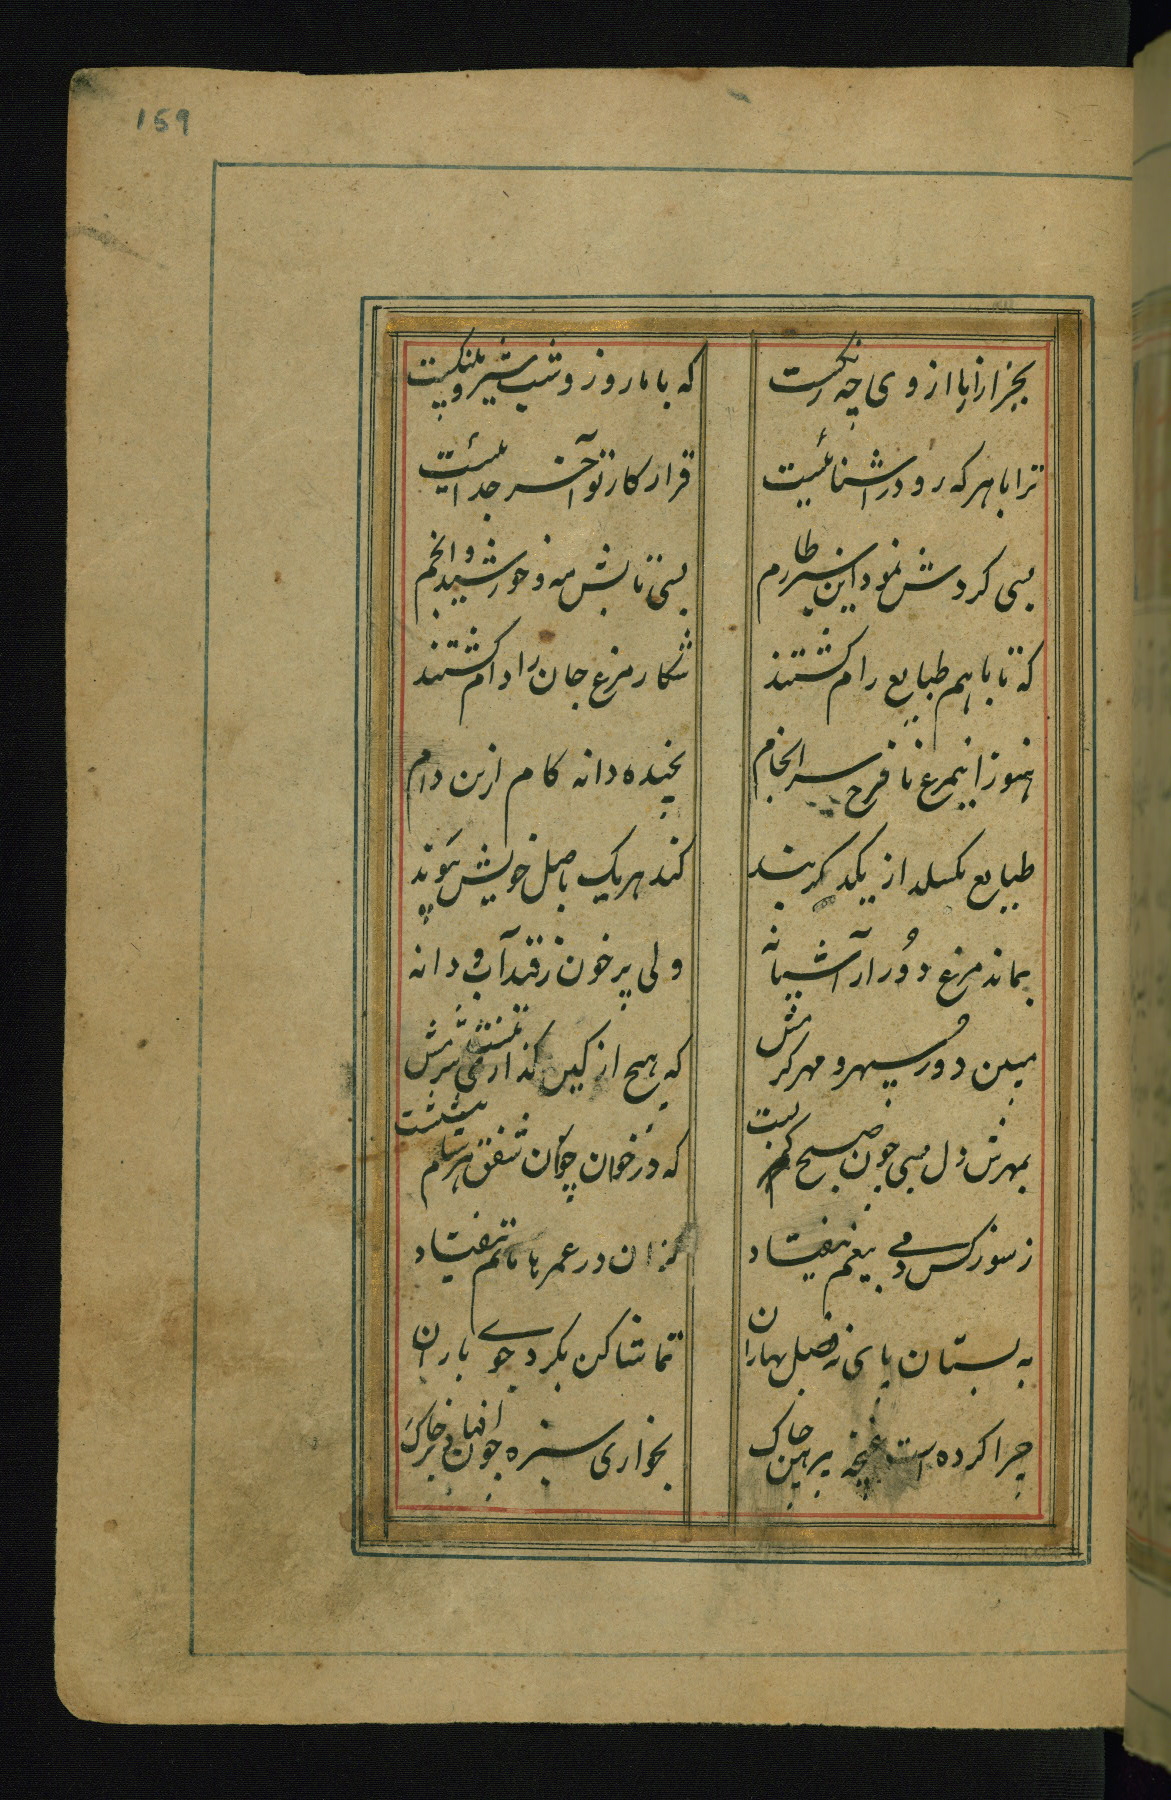 159
بجز آزار ما از وی چه رنگست
که با ما روز و شب شیر و پلنگیست
ترا با هر که رو در آشنائیست
قرار کار تو آخر جدائیست
بسی گردش نمود این سبز طارم
بسی تابش مه و خورشید و انجم
که تا با هم طبایع رام گشتند
شکار مرغ جان را دام گشتند
هنوز این مرغ نافرخ سرانجام
نچیده دانه کام ازین دام
طبایع بگسلد از یکدگر بند
کند هر یک باصل خویش پیوند
بماند مرغ دور از آشیانه
ولی پر خون ز فقد آب و دانه
مبین دور سپهر و مهر گرمش
که هیچ از کین گذاری نیست شرمش
بمهرش دل بسی چون صبح کم بست
که در خون چون شفق هر شام ننشست
ز سوز کس دمی بیغم نیفتاد
کزان در عمرها ماتم نیفتاد
به بستان پای نه فصل بهاران
تماشا کن بگرد جوی باران
چرا کرده است غنچه پیرهن چاک
بخواری سبزه چون افتاد بر خاک